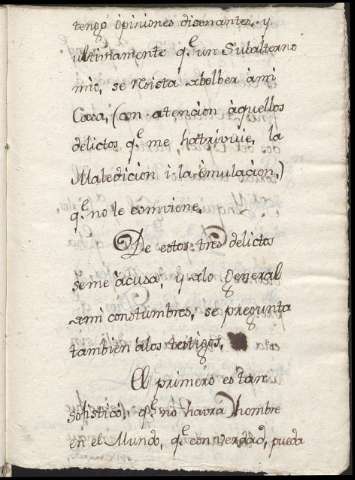 tengo opiniones disonantes, y
ultimamente q.e un Subalterno
mio, se resista abolber àmi
Casa, (con atencion àquellos
delictos q.e me hatriviuie, la
Maledicion i la èmulacion,)
q.e no le combiene.
De estos tres delictos
seme àcusa, y alo general
ami constumbres, se pregunta
tambien àlos testigos,
El primero es tan
sofistico, q.e no havrà hombre
en el Mundo, q.e con verdad, pueda